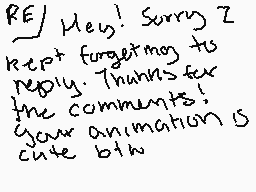 RE/ Hey! Sorry I
kept forgetting to
reply. Thanks for
the comments!
your animation is
cute btw